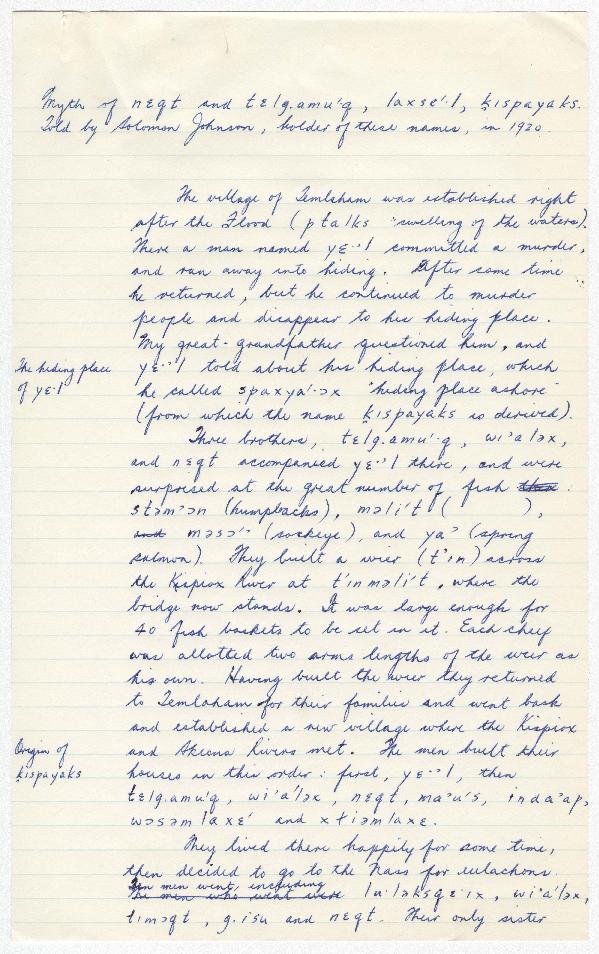 Myth of nɛqt and tɛlg.amu'·q, laxsɛ'·l, ḳispayaks.
Told by Solomon Johnson, holder of these names, in 1920.
The village of Temlaham was established right
after the Flood (ptalks "swelling of the waters).
There a man named yɛ··'l committed a murder,
and ran away into hiding. After some time
he returned, but he continued to murder
people and disappear to his hiding place.
My great-grandfather questioned him, and
The hiding place
of yɛ·l
yɛ··'l told about his hiding place, which
he called spaxya'·ɔx "hiding place ashore"
(from which the name ḳispayaks is derived).
Three brothers, tɛlg.amu'·q, wi'a'lǝx,
and nɛqt accompanied yɛ··'l there, and were
surprised at the great number of fish
stǝm'ɔn (humpbacks), mǝli't ( ),
mǝsɔ'·' (sockeye), and ya' (spring
salmon). They built a wier (t'in) across
the Kispiox River at t'inmǝli't, where the
bridge now stands. It was large enough for
40 fish baskets to be set in it. Each chief
was allotted two arms lengths of the weir as
his own. Having built the wier they returned
to Temlaham for their families and went back
and established a new village where the Kispiox
Origin of
ḳispayaks
and Skeena Rivers met. The men built their
houses in this order: first, yɛ··'l, then
tɛlg.amu'q, wi'a'lǝx, nɛqt, ma'u's, inda'ap,
wǝsǝmlaxɛ' and xtiǝmlaxɛ.
They lived there happily for some time,
then decided to go to the Nass for eulachons.
Ten men went, including
The men who went were lu·lǝksgɛ·ix, wi'a'lǝx,
timǝqt, g.isu and nɛqt. Their only sister